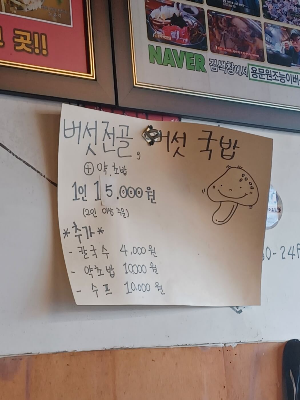 곳!!
NAVER 검색창에서 용문원조능이버
버섯전골, 버섯 국밥
+약초밥
1인 15,000원
(2인 이상 주문)
*추가*
- 칼국수 4,000원
- 약초밥 10000원
- 수프 10,000원